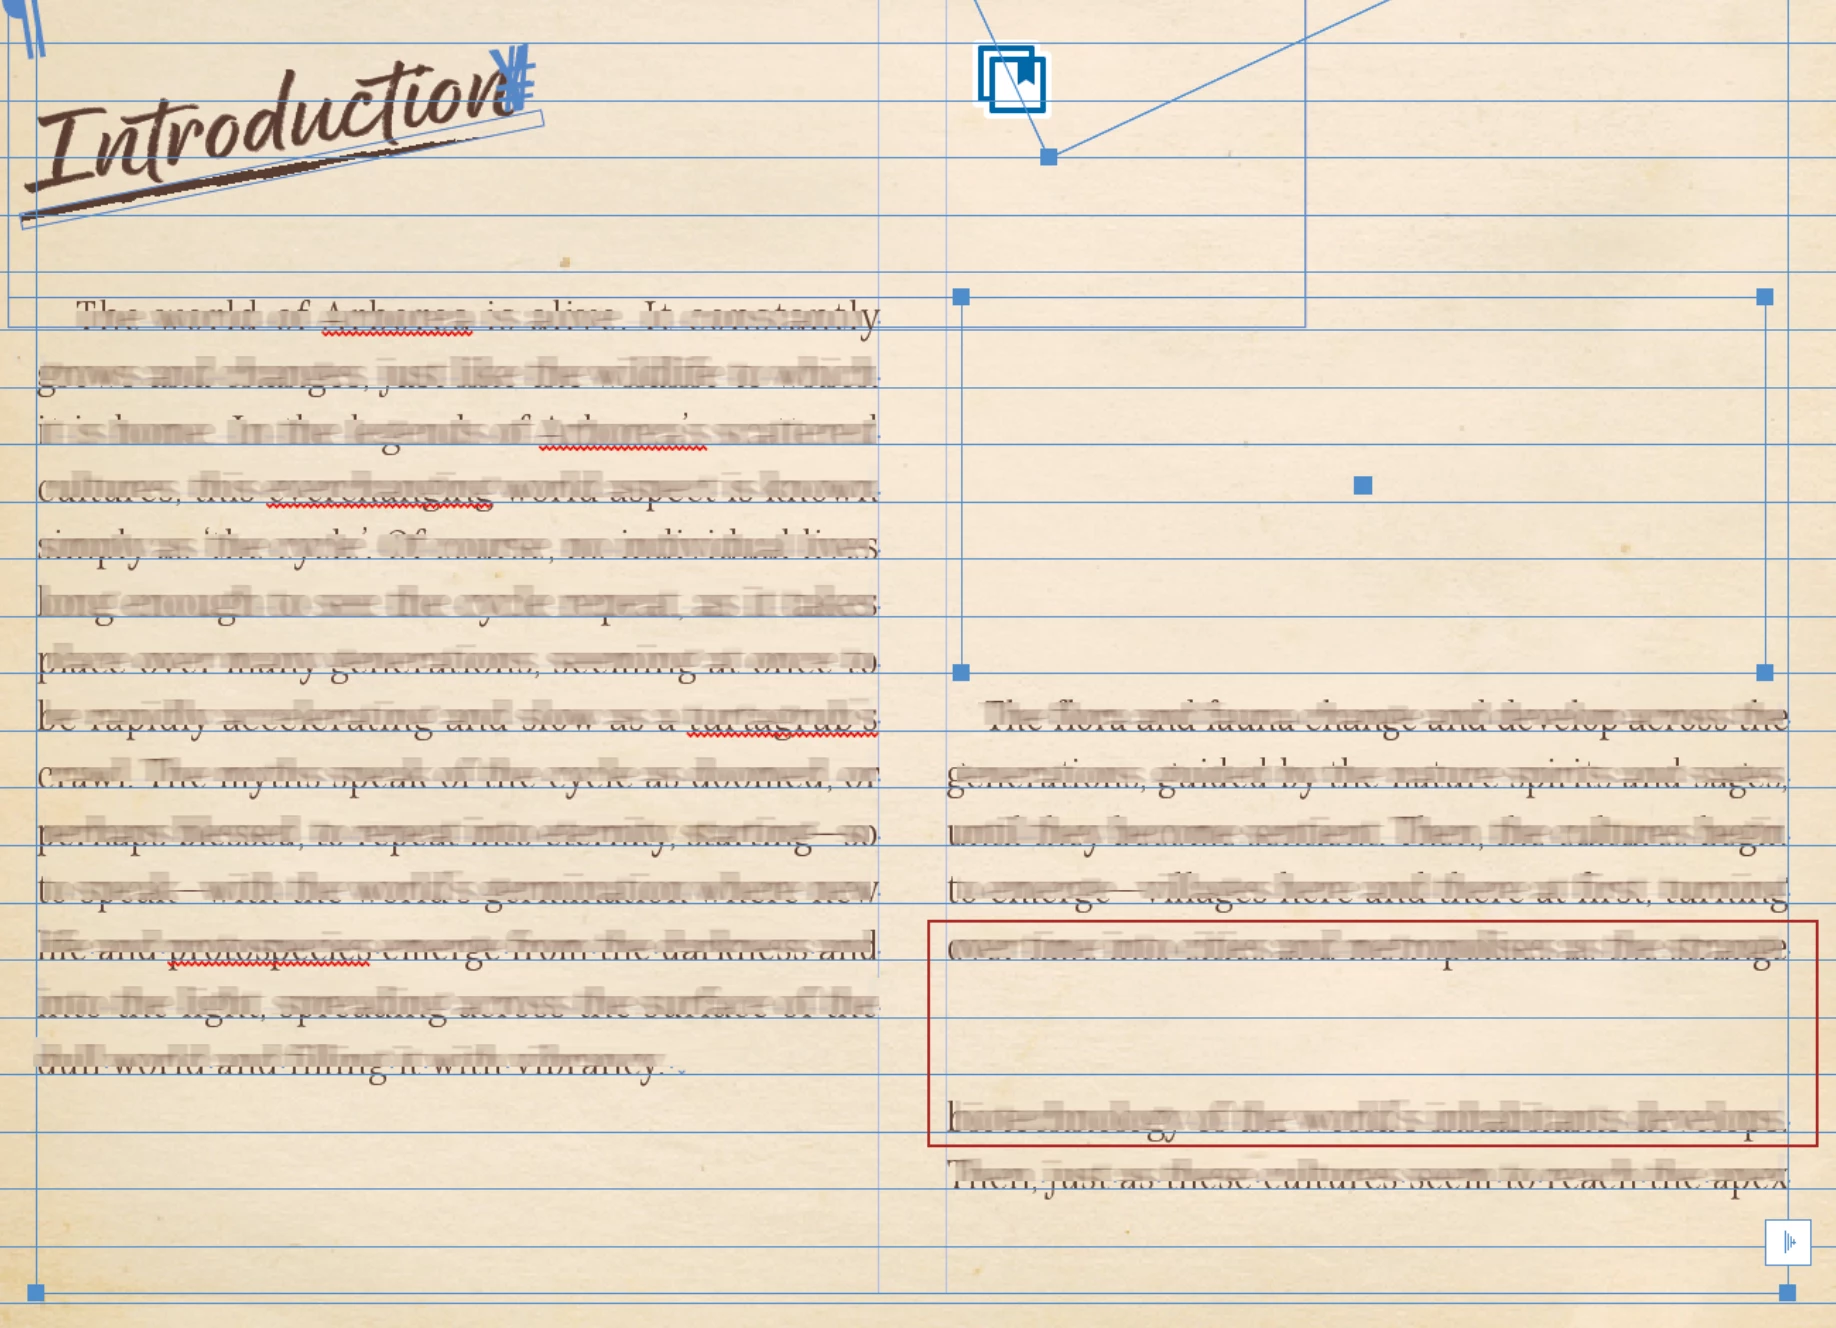 Introduction
The world of Arborea is alive. It constantly
grows and changes, just like the wildlife to which
it is home. In the legends of Arborea's scattered
cultures, this everchanging world aspect is known
simply as ‘the cycle’. Of course, no individual lives
long enough to see the cycle repeat, as it takes
place over many generations, seeming at once to
be rapidly accelerating and slow as a turtagrub's
crawl. The myths speak of the cycle as doomed, or
perhaps blessed, to repeat into eternity, starting—so
to speak—with the world's germination where new
life and protospecies emerge from the darkness and
into the light, spreading across the surface of the
dull world and filling it with vibrancy.
The flora and fauna change and develop across the
generations, guided by the nature spirits and sages,
until they become sentient. Then, the cultures begin
to emerge—villages here and there at first, turning
over time into cities and metropolises as the strange
biotechnology of the world's inhabitants develops.
Then, just as these cultures seem to reach the apex